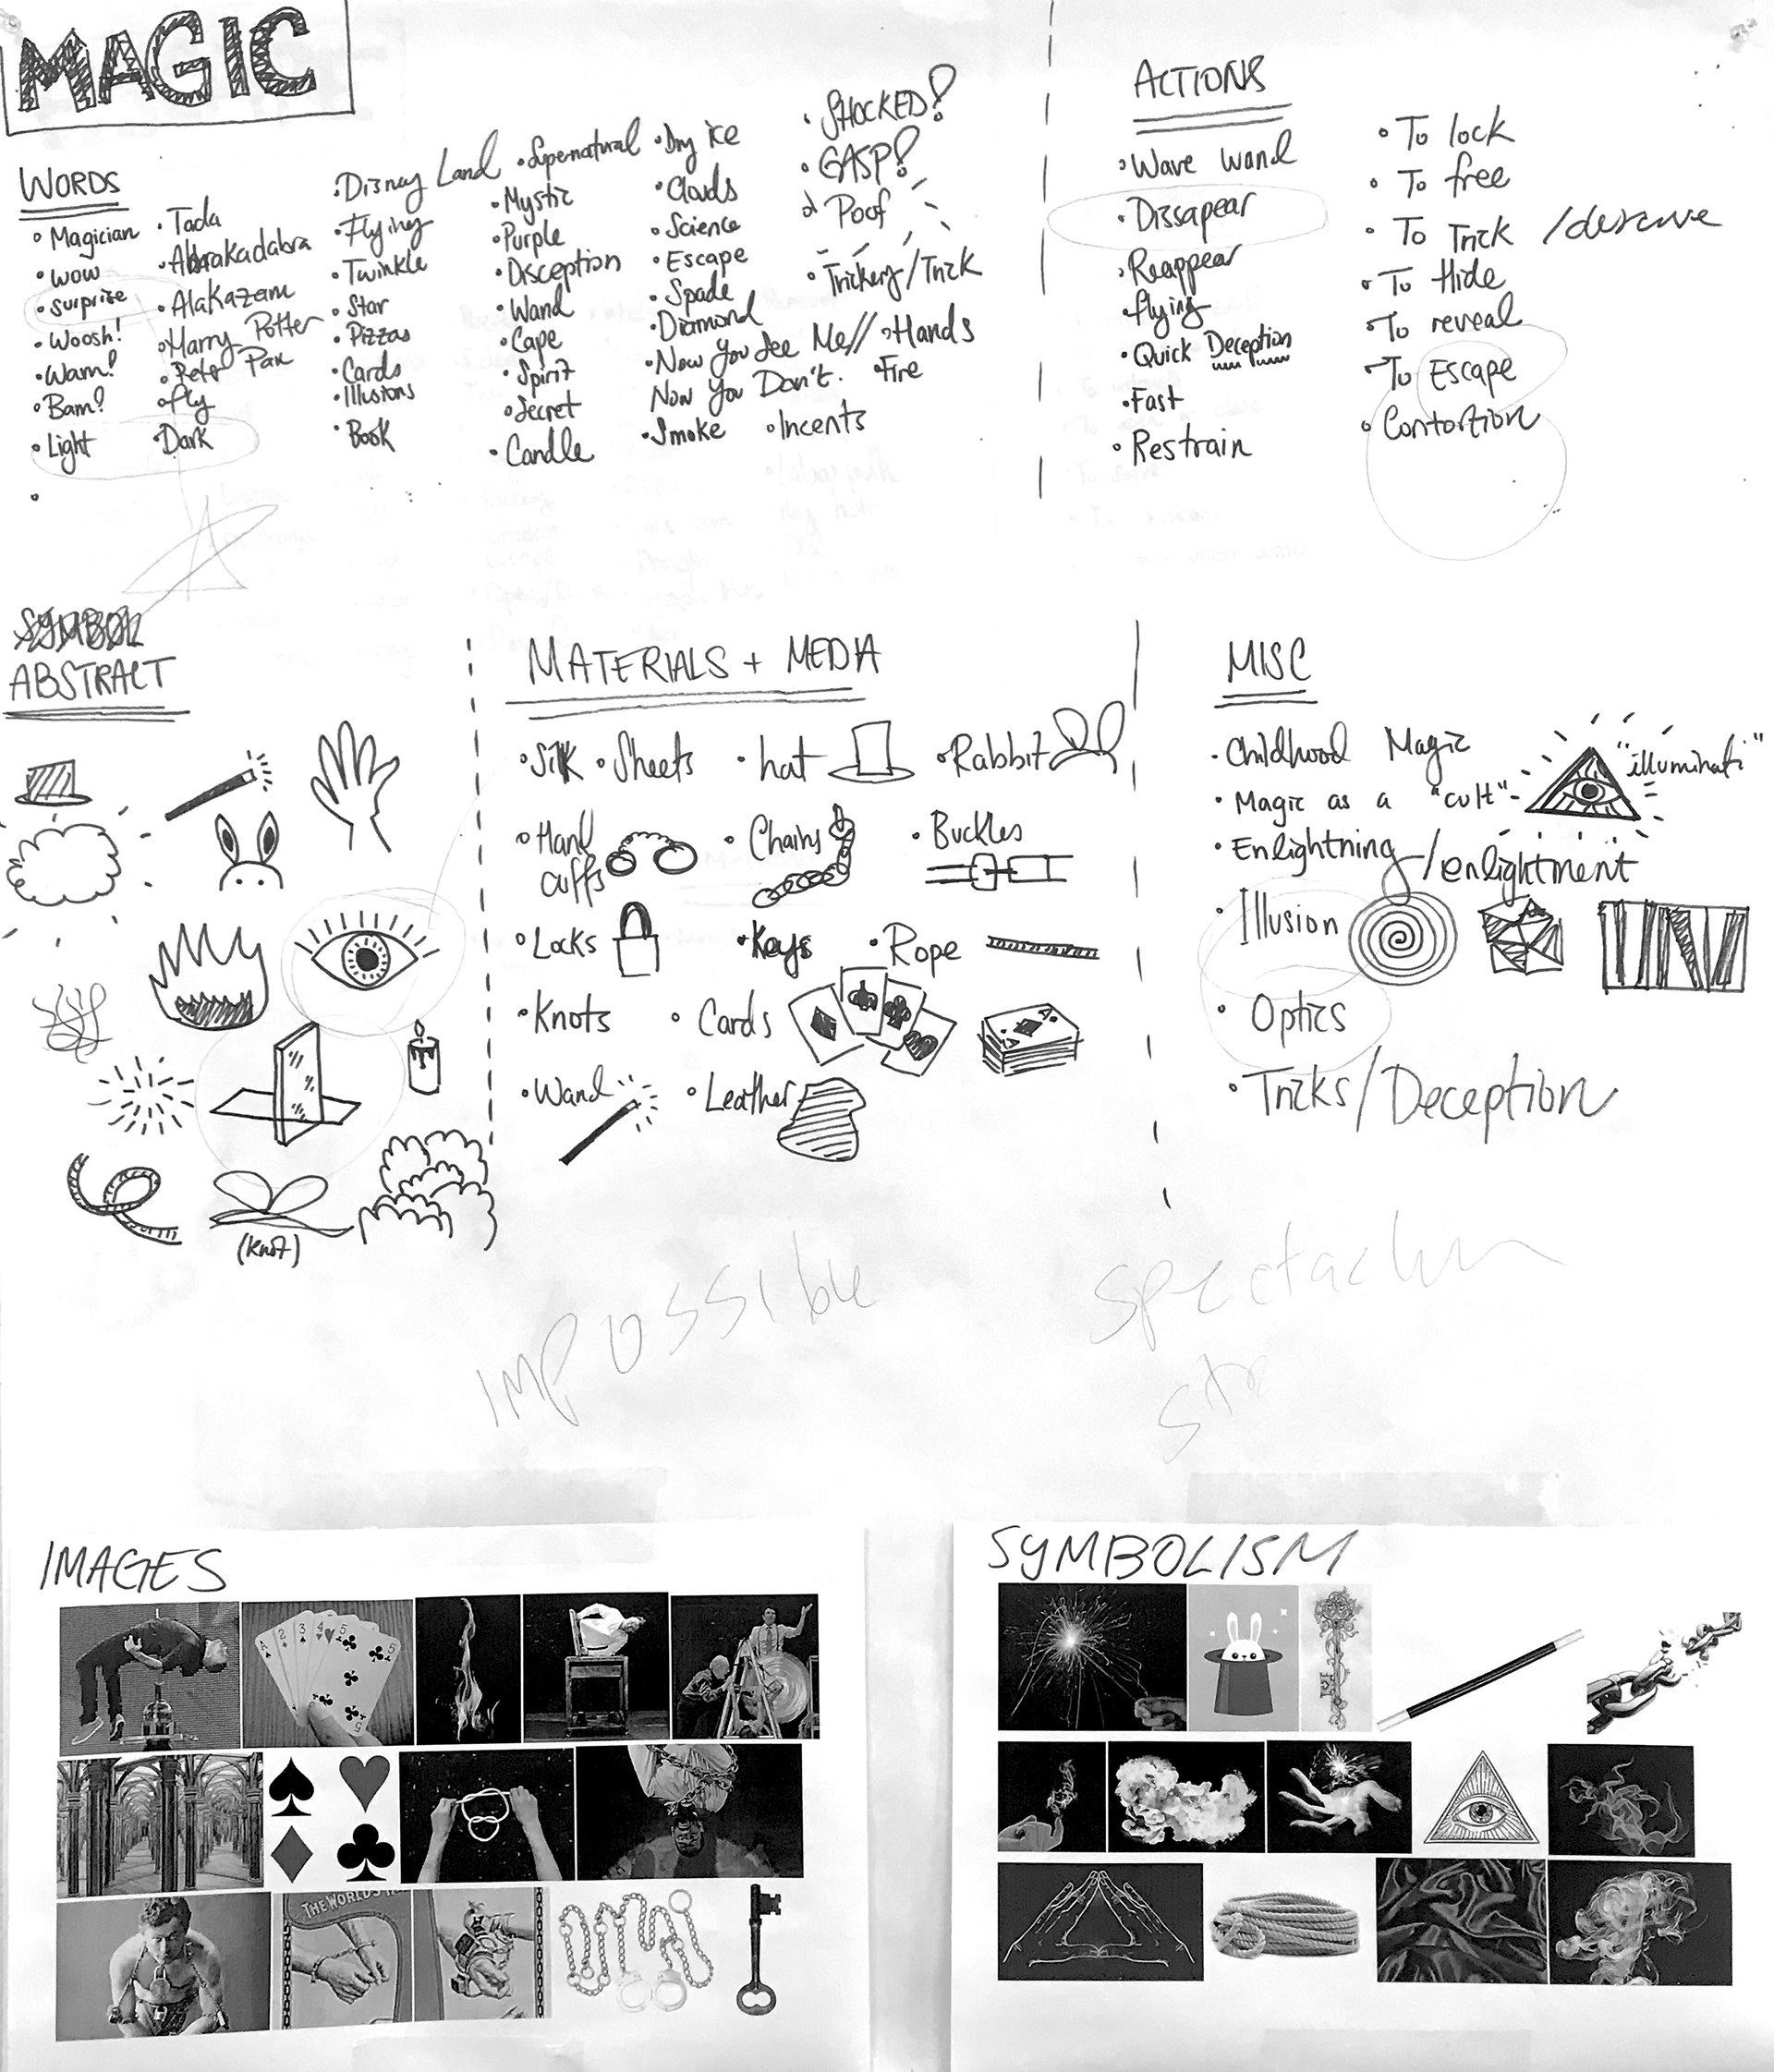 MAGIC
WORDS
• Magician
• wow
• surprise
• Woosh!
• Wam!
• Bam!
• Light
• Tada
• Abrakadabra
• Alakazam
• Harry Potter
• Peter Pan
• fly
• Dark
• Disney Land
• Flying
• Twinkle
• Star
• Pizzas
• Cards
• Illusions
• Book
• Supernatural
• Mystic
• Purple
• Disception
• Wand
• Cape
• Spirit
• Secret
• Candle
• Dry ice
• Clouds
• Science
• Escape
• Spade
• Diamond
• Now You See Me//
Now You Don't.
• Smoke
• SHOCKED!
• GASP!
• Poof
• Trickery/Trick
• Hands
• Fire
• Incents
ACTIONS
• Wave wand
• Dissapear
• Reappear
• flying
• Quick Deception
• Fast
• Restrain
• To lock
• To free
• To Trick /
• To Hide
• To reveal
• To Escape
• Contortion
SYMBOL
ABSTRACT
(Knot)
MATERIALS + MEDIA
• Silk • Sheets • hat • Rabbit
• Hand
cuffs
• Chains • Buckles
• Locks • Keys • Rope
• Knots • Cards
• Wand • Leather
MISC
• Childhood Magic
• Magic as a "cult"
"illuminati"
• Enlightning/enlightment
• Illusion
• Optics
• Tricks/Deception
Impossible
IMAGES
A 2 3 4 5 5
5
THE WORLD'S
SYMBOLISM